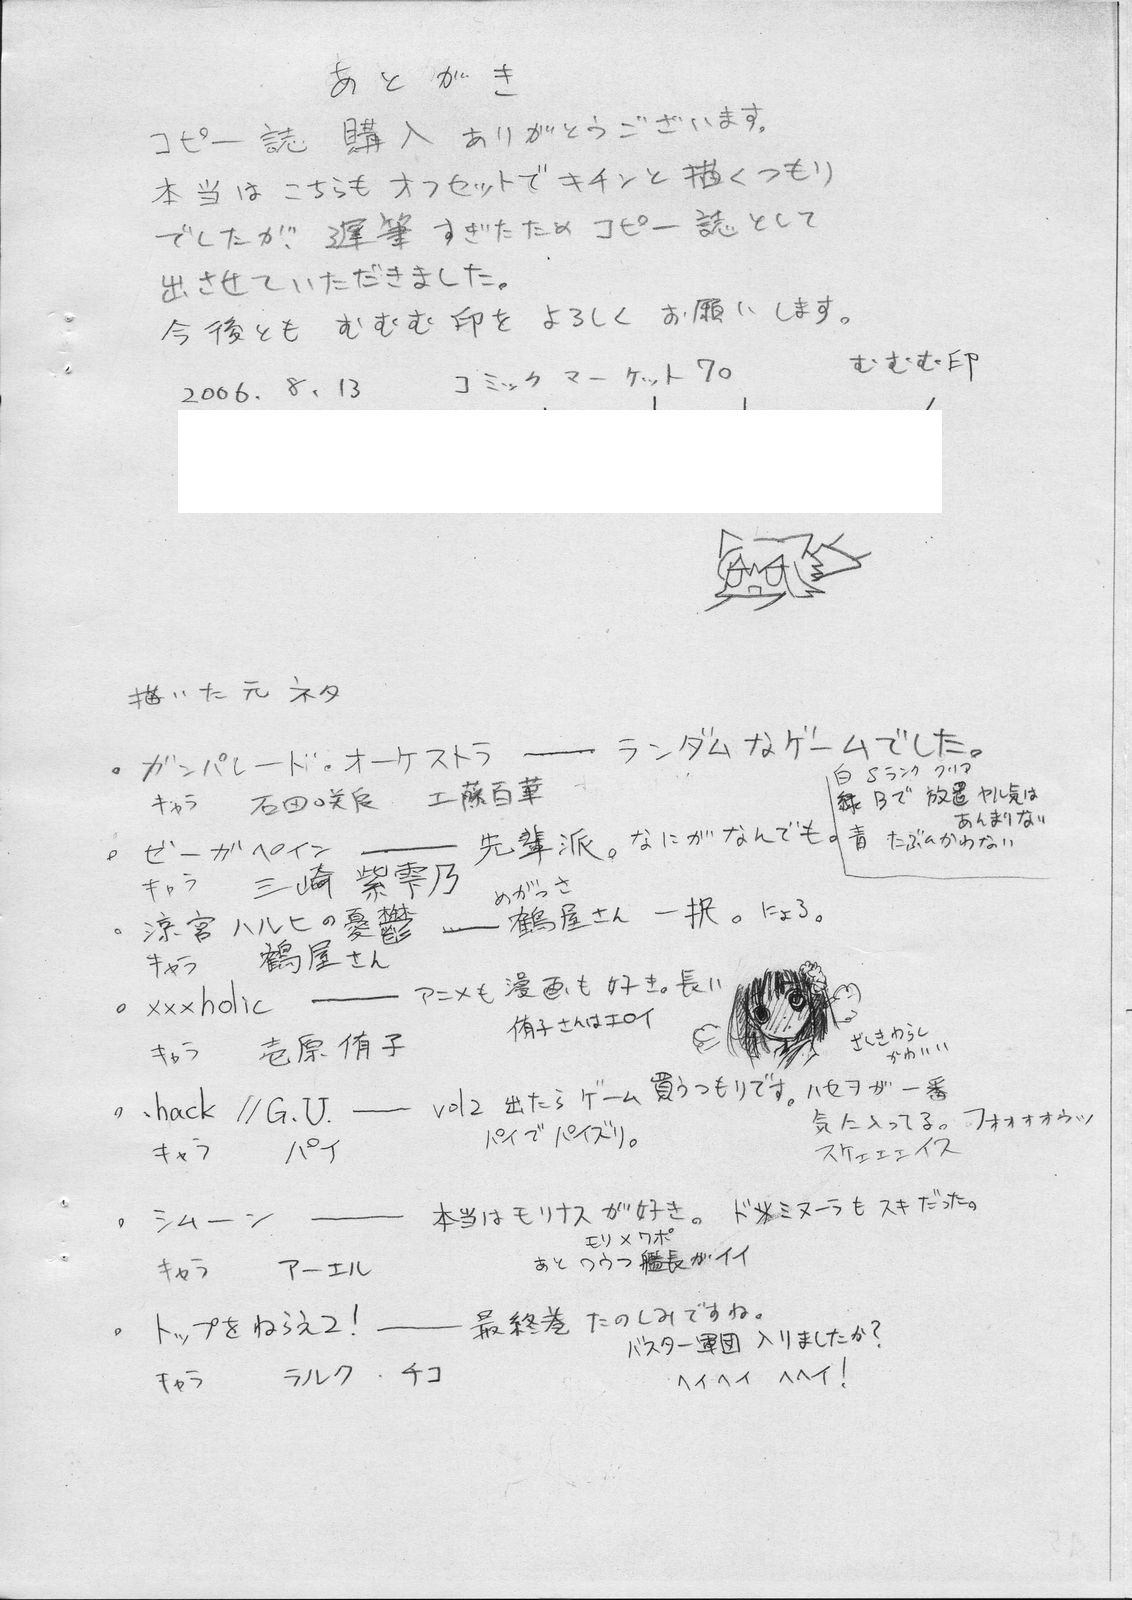 あとがき
コピー誌 購入 ありがとうございます。
本当は こちらも オフセットで キチンと 描くつもり
でしたが、遅筆 すぎたため コピー誌として
出させていただきました。
今後とも むむむ印を よろしく お願いします。
むむむ印
2006.8.13 コミックマーケット70
描いた元ネタ
・ガンパレード・オーケストラ ― ランダムなゲームでした。
白 Sランク クリア
緑 Bで 放置 ヤル気は
あんまりない
青 たぶんかわない
キャラ 石田咲良 工藤百華
・ゼーガペイン ― 先輩派。なにがなんでも。
キャラ 三崎 紫雫乃
めがっさ
・涼宮ハルヒの憂鬱 ― 鶴屋さん 一択。にょろ。
キャラ 鶴屋さん
・xxxholic ― アニメも 漫画も 好き。長い
侑子さんはエロイ
キャラ 壱原侑子
ざしきわらし
かわいい
・.hack//G.U. ― vol2 出たら ゲーム 買うつもりです。ハセヲが一番
気に入ってる。フォォォォウッ
キャラ パイ
パイで パイズリ。
スケェェェイス
・シムーン ― 本当はモリナスが好き。ドミヌーラもスキだった。
モリ×ワポ
キャラ アーエル
あと ワウフ 艦長がイイ
・トップをねらえ2! ― 最終巻 たのしみですね。
バスター軍団 入りましたか?
キャラ ラルク・チコ
ヘイヘイ ヘヘイ!